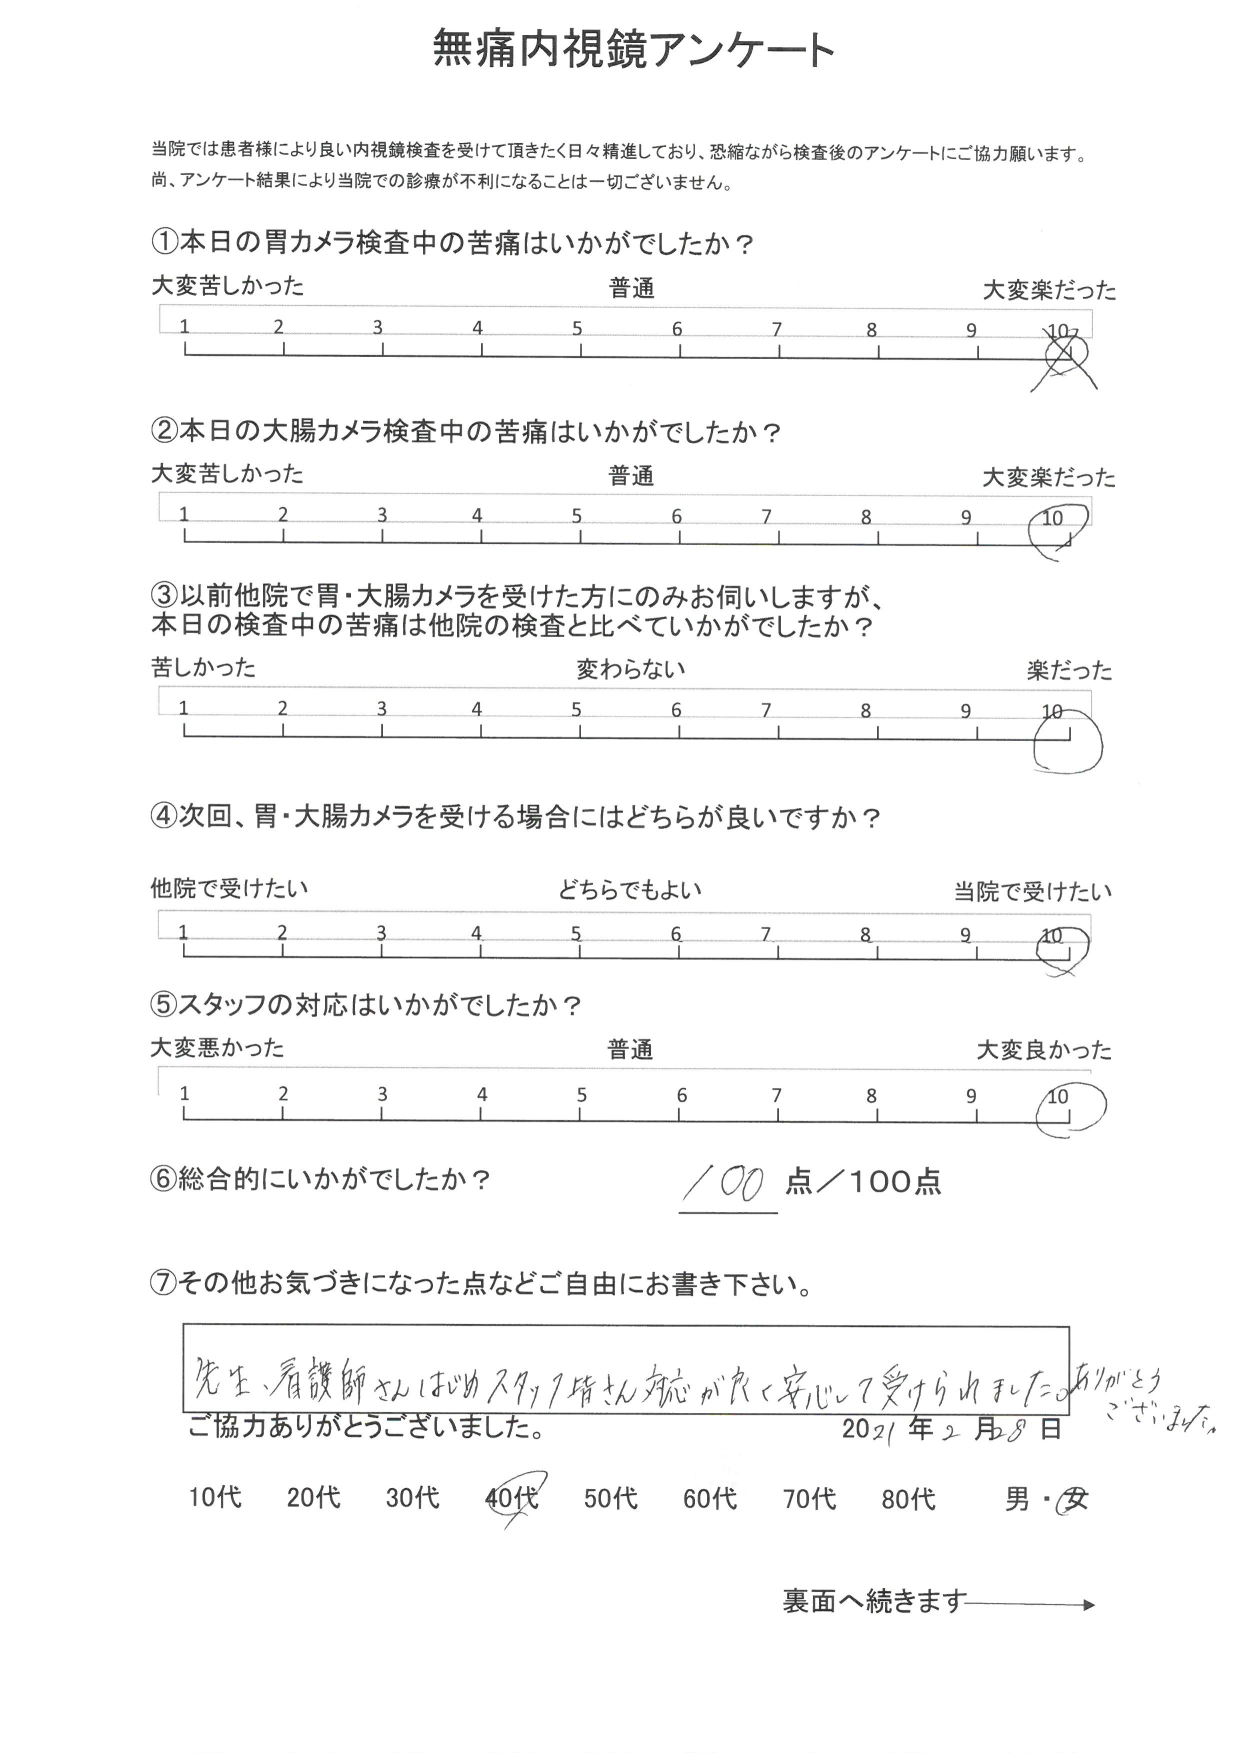 無痛内視鏡アンケート
当院では患者様により良い内視鏡検査を受けて頂きたく日々精進しており、恐縮ながら検査後のアンケートにご協力願います。
尚、アンケート結果により当院での診療が不利になることは一切ございません。
①本日の胃カメラ検査中の苦痛はいかがでしたか？
大変苦しかった 普通 大変楽だった
1 2 3 4 5 6 7 8 9 10
②本日の大腸カメラ検査中の苦痛はいかがでしたか？
大変苦しかった 普通 大変楽だった
1 2 3 4 5 6 7 8 9 10
③以前他院で胃・大腸カメラを受けた方にのみお伺いしますが、
本日の検査中の苦痛は他院の検査と比べていかがでしたか？
苦しかった 変わらない 楽だった
1 2 3 4 5 6 7 8 9 10
④次回、胃・大腸カメラを受ける場合にはどちらが良いですか？
他院で受けたい どちらでもよい 当院で受けたい
1 2 3 4 5 6 7 8 9 10
⑤スタッフの対応はいかがでしたか？
大変悪かった 普通 大変良かった
1 2 3 4 5 6 7 8 9 10
⑥総合的にいかがでしたか？ 100 点／100点
⑦その他お気づきになった点などご自由にお書き下さい。
先生、看護師さんはじめスタッフ皆さん対応が良く安心して受けられました。ありがとう
ございました。
ご協力ありがとうございました。 2021年2月28日
10代 20代 30代 40代 50代 60代 70代 80代 男・女
裏面へ続きます